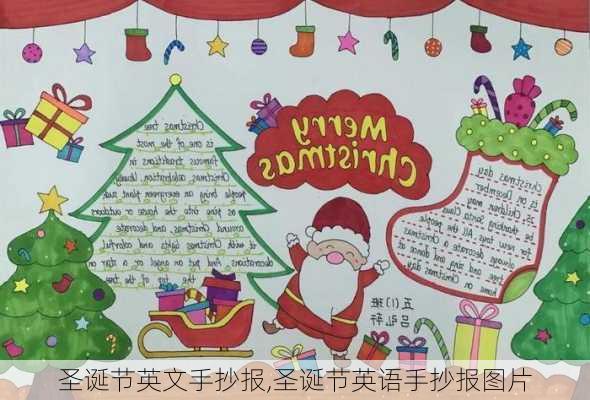 Merry
Christmas
Christmas tree
is one of the most
famous traditions in
Christmas celebration. Usually
people bring an evergreen plant
as play into the house or outdoors
around Christmas and decorate
it with Christmas lights and colorful
decorations. And put an angel or a star on
the top of the tree
Christmas day
is on December
25. Children may
be thanking Santa Claus
for new toys. All the people
always decorate a christmas
tree and sing and dance at
home on Christmas day.
五(1)班
吕弘轩
圣诞节英文手抄报,圣诞节英语手抄报图片